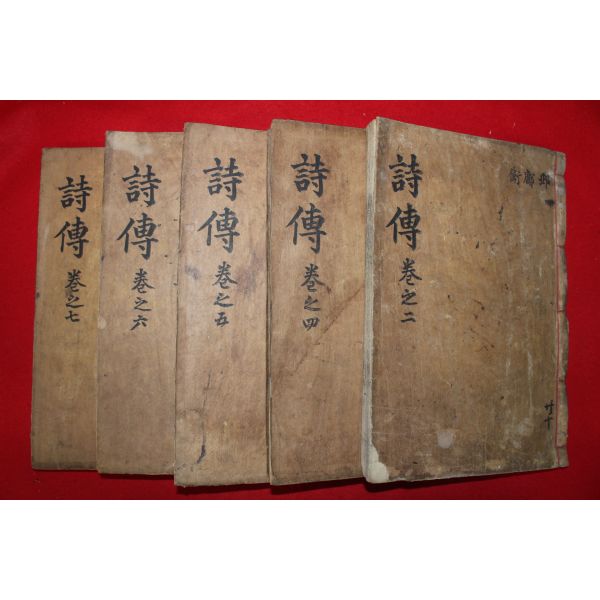 邶鄘衛
共十
詩傳
卷之二
詩傳
卷之四
詩傳
卷之五
詩傳
卷之六
詩傳
卷之七